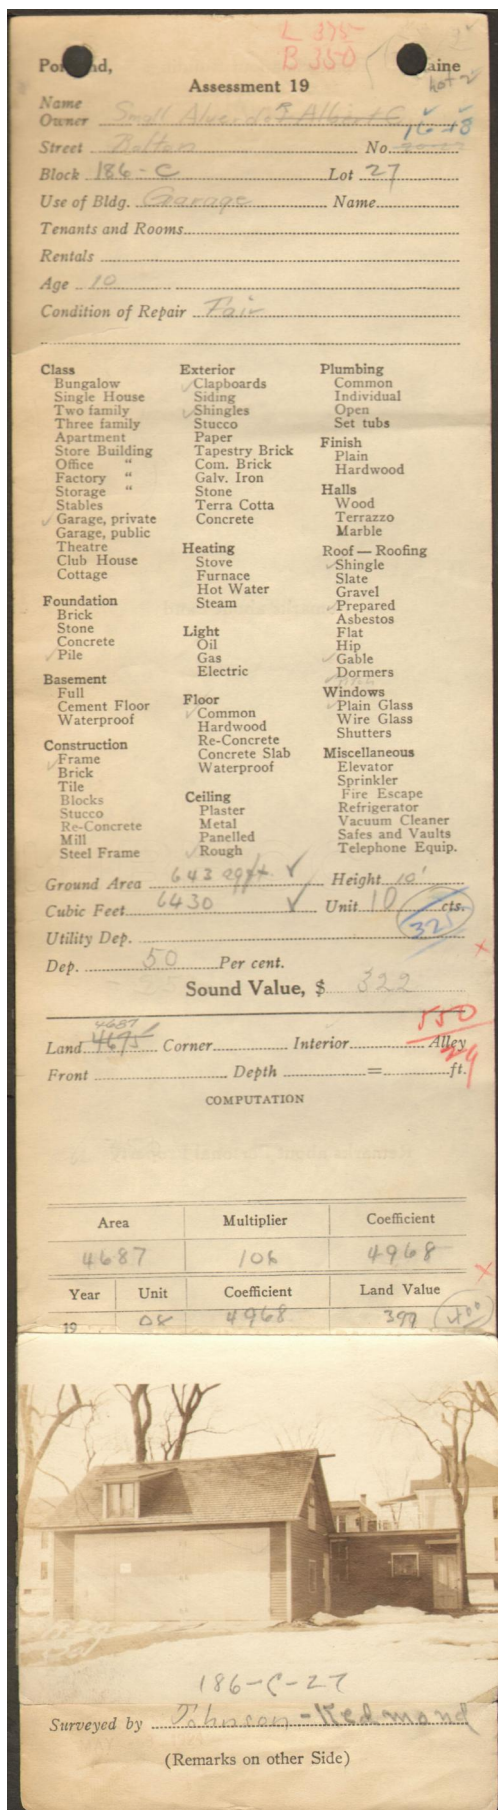 L 375
B 350
Portland, Maine
Assessment 19
Name
Owner Small
Street Bolton No. 16-18
Block 186-C Lot 27
Use of Bldg. Garage Name
Tenants and Rooms
Rentals
Age 10
Condition of Repair Fair
Class
Bungalow
Single House
Two family
Three family
Apartment
Store Building
Office "
Factory "
Storage "
Stables
✓ Garage, private
Garage, public
Theatre
Club House
Cottage
Foundation
Brick
Stone
Concrete
✓ Pile
Basement
Full
Cement Floor
Waterproof
Construction
✓ Frame
Brick
Tile
Blocks
Stucco
Re-Concrete
Mill
Steel Frame
Exterior
✓ Clapboards
Siding
✓ Shingles
Stucco
Paper
Tapestry Brick
Com. Brick
Galv. Iron
Stone
Terra Cotta
Concrete
Heating
Stove
Furnace
Hot Water
Steam
Light
Oil
Gas
Electric
Floor
✓ Common
Hardwood
Re-Concrete
Concrete Slab
Waterproof
Ceiling
Plaster
Metal
Panelled
✓ Rough
Plumbing
Common
Individual
Open
Set tubs
Finish
Plain
Hardwood
Halls
Wood
Terrazzo
Marble
Roof — Roofing
✓ Shingle
Slate
Gravel
✓ Prepared
Asbestos
Flat
Hip
✓ Gable
Dormers
Windows
✓ Plain Glass
Wire Glass
Shutters
Miscellaneous
Elevator
Sprinkler
Fire Escape
Refrigerator
Vacuum Cleaner
Safes and Vaults
Telephone Equip.
Ground Area 643 sq ft. ✓ Height 10'
Cubic Feet 6430 ✓ Unit 10 cts.
Utility Dep.
Dep. 50 Per cent.
Sound Value, $ 322
550
4687
Land 4695 Corner Interior Alley
Front Depth = ft.
COMPUTATION
Area Multiplier Coefficient
4687 106 4968
Year Unit Coefficient Land Value
19 08 4968 397 400
186-C-27
Surveyed by Johnson-Redmond
(Remarks on other Side)